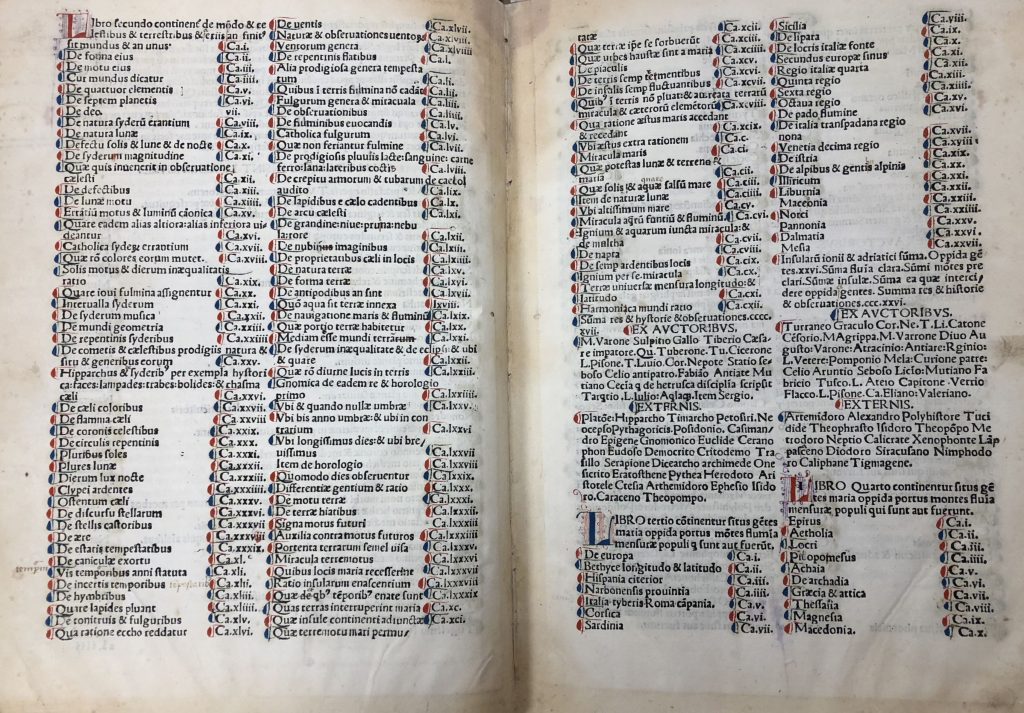 Libro secundo continent de mõdo & ce
lestibus & terrestribus & aeriis an finit
sit mundus & an unus Ca.i.
De forma eius Ca.ii.
De motu eius Ca.iii.
Cur mundus dicatur Ca.iiii.
De quattuor elementis Ca.v.
De septem planetis Ca.vi.
De deo. vii.
De natura syderũ errantium Ca.viii.
De natura lunæ Ca.ix.
Defectu solis & lune & de nocte Ca.x.
De syderum magnitudine Ca.xi.
Quæ quis inuenerit in obseruatione
cælesti Ca.xii.
De defectibus Ca.xiii.
De lunæ motu Ca.xiiii.
Erratiũ motus & luminũ cãonica Ca.xv.
Quare eadem alias altiora:alias inferiora ui
deantur Ca.xvi.
Catholica syderũ errantium Ca.xvii.
Quæ rõ colores eorum mutet. Ca.xviii.
Solis motus & dierum inæqualitatis
ratio Ca.xix.
Quare ioui fulmina assignentur Ca.xx.
Interualla syderum Ca.xxi.
De syderum musica Ca.xxii.
De mundi geometria Ca.xxiii.
De repentinis syderibus Ca.xxiiii.
De cometis & cælestibus prodigiis natura &
situ & generibus eorum Ca.xxv.
Hipparchus & syderibꝰ per exempla hystori
ca:faces:lampades:trabes:bolides:& chasma
cæli Ca.xxvi.
De cæli coloribus Ca.xxvii.
De flamma cæli Ca.xxviii.
De coronis celestibus Ca.xxix.
De circulis repentinis Ca.xxx.
Pluribus soles Ca.xxxi.
Plures lunæ Ca.xxxii.
Dierum lux nocte Ca.xxxiii.
Clypei ardentes Ca.xxxiiii.
Ostentum cæli Ca.xxxv.
De discursu stellarum Ca.xxxvi
De stellis castoribus Ca.xxxvii
De ære Ca.xxxviii
De estatis tempestatibus Ca.xxxix.
De caniculæ exortu Ca.xl.
Vis temporibus anni statuta Ca.xli.
De incertis temporibus Ca.xlii.
De hymbribus Ca.xliii.
Quare lapides pluant Ca.xliiii.
De tonitruis & fulguribus Ca.xlv.
Qua ratione eccho reddatur Ca.xlvi.
De uentis Ca.xlvii.
Naturæ & obseruationes uentorũ Ca.xlviii.
Ventorum genera Ca.xlviiii
De repentinis flatibus Ca.l.
Alia prodigiosa genera tempesta
tum Ca.li.
Quibus ĩ terris fulmina nõ cadãt Ca.lii.
Fulgurum genera & miracula Ca.liii.
De obseruationibus Ca.liiii.
De fulminibus euocandis Ca.lv.
Catholica fulgurum Ca.lvi.
Quæ non feriantur fulmine Ca.lvii.
De prodigiosis pluuiis lacte:sanguine: carne
ferro:lana:lateribus coctis Ca.lviii.
De crepitu armorum & tubarum de caelo
audito Ca.lix.
De lapidibus e cælo cadentibus Ca.lx.
De arcu cælesti Ca.lxi.
De grandine:niue:pruina:nebu
la:rore Ca.lxii.
De nubium imaginibus Ca.lxiii.
De proprietatibus cæli in locis Ca.lxiiii.
De natura terræ Ca.lxv.
De forma terræ Ca.lxvi.
De antipodibus an sint Ca.lxvii.
Quõ aqua sit terræ innexa lxviii.
De nauigatione maris & fluminũ Ca.lxix.
Quæ portio terræ habitetur Ca.lxx.
Mediam esse mundi terram Ca.lxxi.
De syderum inæqualitate & de eclipsi: & ubi
& quare Ca.lxxii.
Quæ rõ diurne lucis in terris Ca.lxxiii.
Gnomica de eadem re & horologio
primo Ca.lxxiiii.
Vbi & quando nullæ umbræ Ca.lxxv.
Vbi bis anno umbræ: & ubi in con
trarium Ca.lxxvi
Vbi longissimus dies: & ubi bre
uissimus
Item de horologio Ca.lxxvii
Quomodo dies obseruentur Ca.lxxviii.
Differentiæ gentium & ratio Ca.lxxix.
De motu terræ Ca.lxxx.
De terræ hiatibus Ca.lxxxi.
Signa motus futuri Ca.lxxxii
Auxilia contra motus futuros Ca.lxxxiii
Portenta terrarum semel uisa Ca.lxxxiiii
Miracula terremotus Ca.lxxxv
Quibus locis maria recesserint Ca.lxxxvi
Ratio insularum enascentium Ca.lxxxvii
Quæ & de qbꝰ tẽporibꝰ enatæ sunt
Quas terras interruperint maria Ca.xc.
Quæ insule continenti adiunctæ Ca.xci.
Quæ terre motu mari permu
tatæ Ca.xcii.
Quæ terræ ipse se sorbuerũt Ca.xciii.
Quæ urbes haustæ sint a maria Ca.xciiii.
De piaculis Ca.xcv.
De terris semp trementibus Ca.xcvi.
De insulis semp fluctuantibus Ca.xcvii.
Quibꝰ ĩ terris nõ pluat:& aurea
miracula & cæterorũ elemẽtorũ Ca.xcviii.
Qua ratione æstus maris accedant
& recedant Ca.xcix.
Vbi æstus extra rationem Ca.c.
Miracula maris Ca.ci.
Quæ potestas lunæ & terreno &
maria Ca.cii.
Quæ solis: & aquæ salsũ mare Ca.ciii.
Item de naturæ lunæ Ca.ciiii.
Vbi altissimum mare Ca.cv.
Miracula aqrũ fontiũ & fluminũ Ca.cvi.
Ignium & aquarum iuncta miracula: &
de maltha Ca.cvii.
De napta Ca.cviii.
De semp ardentibus locis Ca.cix.
Ignium per se miracula Ca.cx.
Terræ uniuersæ mensura longitudo: &
latitudo Ca.cxi.
Harmonica mundi ratio Ca.cxii.
Sũma res & hystoriæ & obseruationes.cccc.
xvii. EX AVCTORIBVS.
M.Varone Sulpitio Gallo Tiberio Cæsa
re impator. Qu. Tuberone. Tu. Cicerone
L.Pisone. T. Liuio. Cor. Nepote Statio se
boso Celio antipatro. Fabião Antiate Mu
tiano Cecia q de hetrusca disciplia scripsit
Tarqtio. L. Iulio. Aqla. Item Sergio.
EXTERNIS.
Platõe: Hipparcho Timarcho Petosiri. Ne
cepso Pythagoricis. Posidonio. Casiman/
dro Epigene Gnomonico Euclide Cerano
phon Eudoso Democrito Critodemo Tra
sillo Serapione Dicearcho archimede One
sicrito Eratosthene Pythea Herodoto Ari
stotele Ctesia Arthemidoro Ephesio Isido
ro. Caraceno Theopompo.
LIBRO tertio cõtinentur situs gẽtes
maria oppida portus mõtes flumia
mensuræ populi q sunt aut fuerũt.
De europa Ca.i.
Bethyce longitudo & latitudo Ca.ii.
Hispania citerior Ca.iii.
Narbonensis prouintia Ca.iiii.
Italia tyberis Roma cãpania. Ca.v.
Corsica Ca.vi.
Sardinia Ca.vii.
Sicilia Ca.viii.
De lipara Ca.ix.
De locris italiæ fonte Ca.x.
Secundus europæ sinus Ca.xi.
Regio italiæ quarta Ca.xii.
Quinta regio Ca.xiii.
Sexta regio Ca.xiiii.
Octaua regio Ca.xv.
De pado flumine Ca.xvi.
De italia transpadana regio
nona Ca.xvii.
Venetia decima regio Ca.xviii.
De istria Ca.xix.
De alpibus & gentis alpinis Ca.xx.
Illiricum Ca.xxi.
Liburnia Ca.xxii.
Macedonia Ca.xxiii.
Norici Ca.xxiiii.
Pannonia Ca.xxv.
Dalmatia Ca.xxvi.
Mesia Ca.xxvii.
Insularũ ionii & adriatici sũma. Oppida gẽ
tes.xxvi. Sũma fluia clara. Sũmi mõtes pre
clari. Sũmæ insulæ. Sũma ea quæ interci
dere oppida gentes. Summa res & historiæ
& obseruationes.ccc.xxvi.
EX AVCTORIBVS.
Turraneo Graculo Cor. Ne. T. Li. Catone
Cẽsorio. M Agrippa. M. Varrone Diuo Au
gusto: Varone: Atracino: Antiate: Rginio:
L. Vetere: Pomponio Mela: Curione patre:
Celio Aruntio Seboso Licio: Mutiano Fa
bricio Tusco. L. Ateio Capitone. Verrio
Flacco. L. Pisone. Ca. Eliano: Valeriano.
EXTERNIS.
Artemidoro Alexandro Polyhistore Tuci
dide Theophrasto Isidoro Theopõpo Me
trodoro Neptio Calicrate Xenophonte Lãp
pasceno Diodoro Siracusano Nimphodo
ro Caliphane Tigmagene.
LIBRO Quarto continentur situs gẽ
tes maria oppida portus montes fluia
mensuræ populi qui sunt aut fuerunt.
Epirus Ca.i.
Aetholia Ca.ii.
Locri Ca.iii.
Peloponesus Ca.iiii.
Achaia Ca.v.
De archadia Ca.vi.
Græcia & attica Ca.vii.
Thessalia Ca.viii.
Magnesia Ca.ix.
Macedonia. Ca.x.